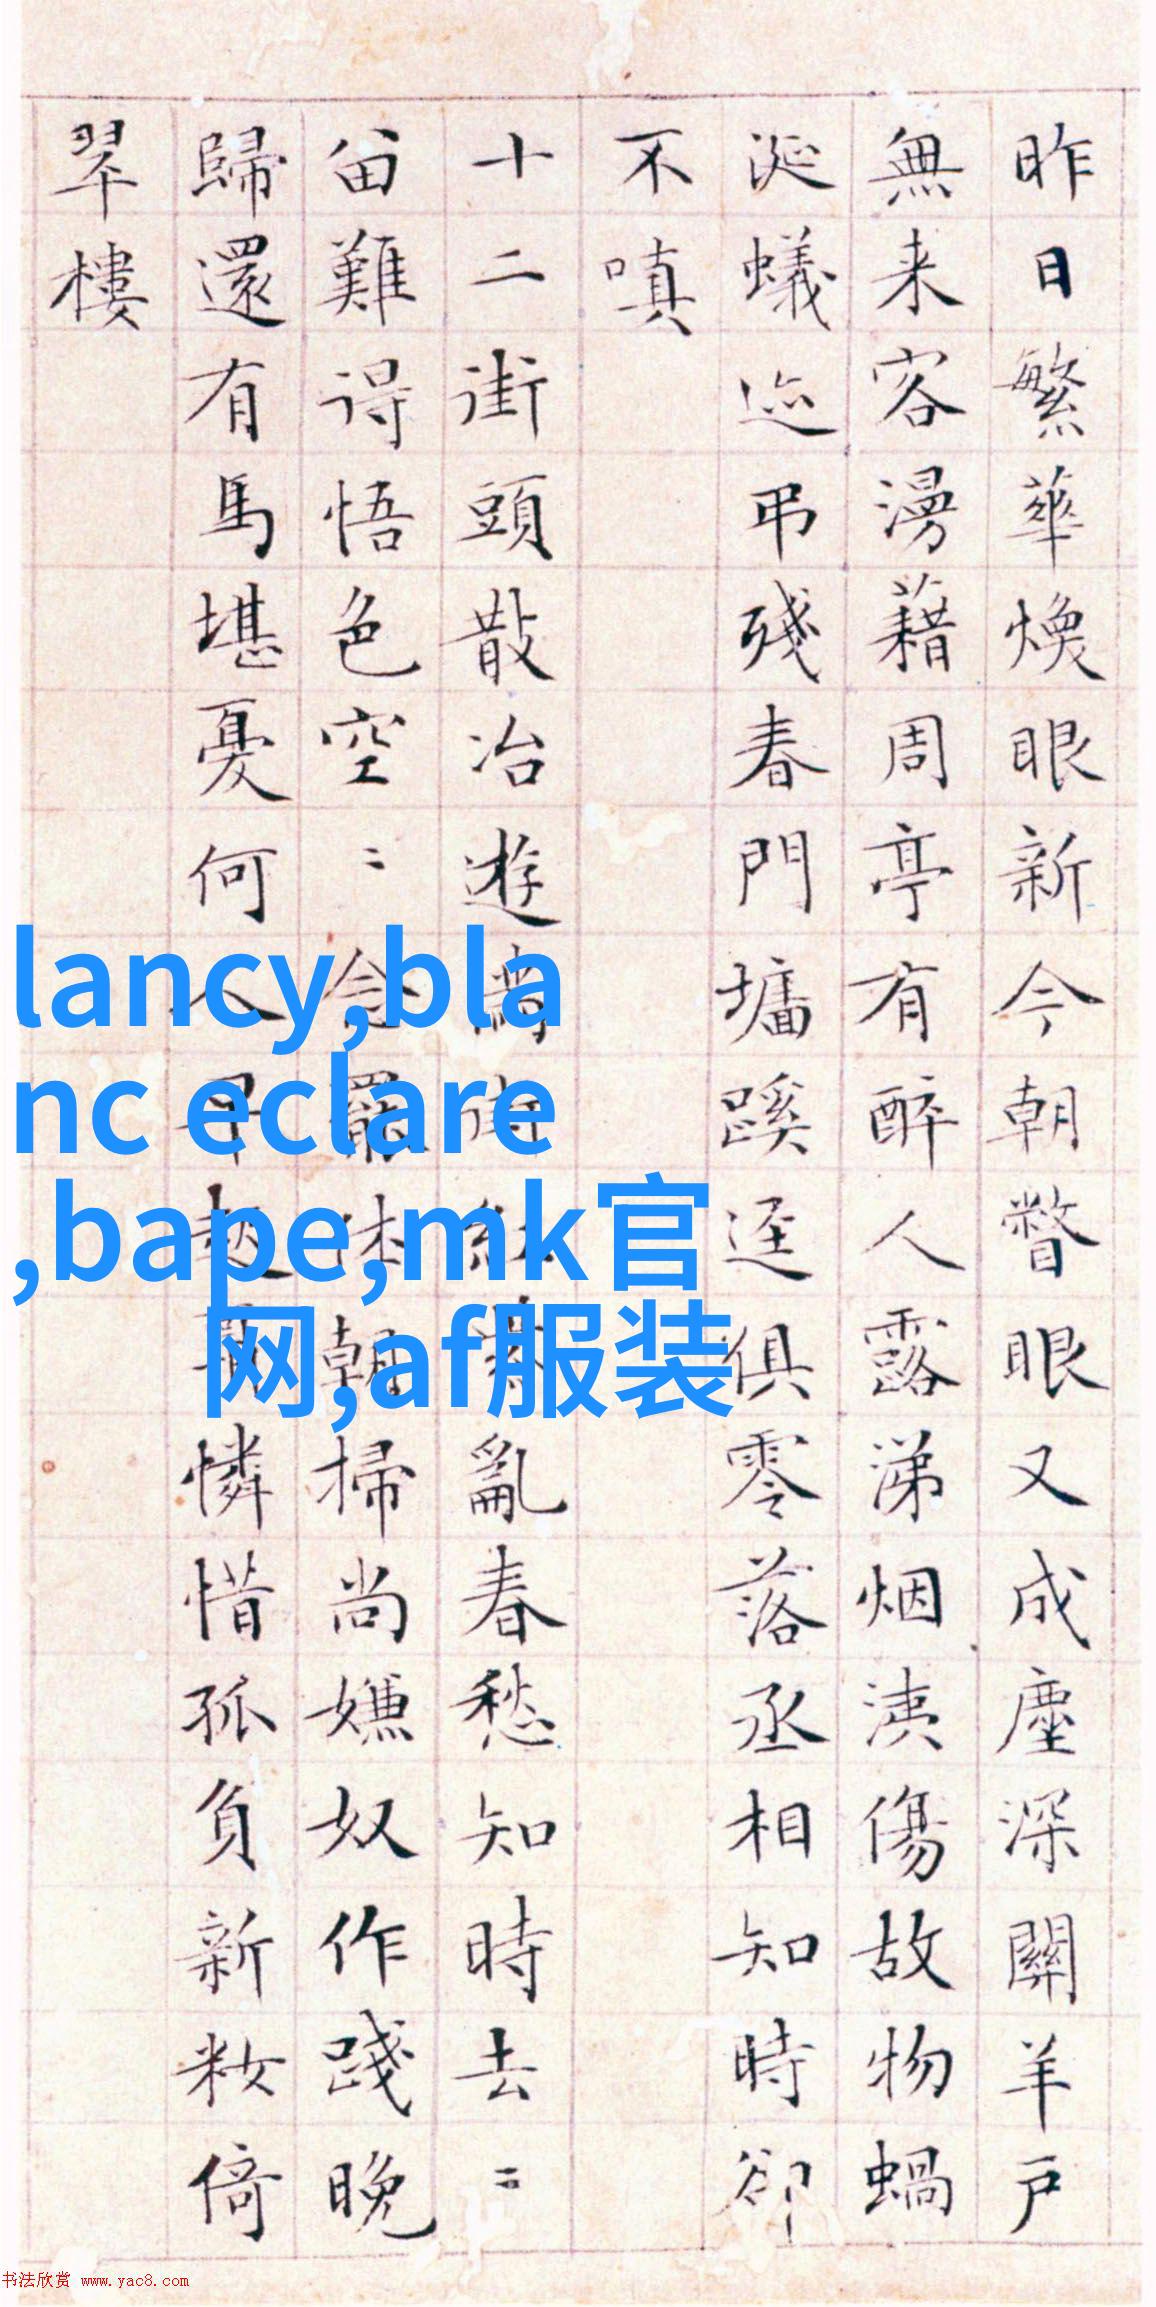 昨日繁華煥眼新今朝瞥眼又成塵深關羊戶
無来客漫藉周亭有醉人露涕烟洟傷故物蝸
涎蟻迹弔殘春門墻蹊逕俱零落丞相知時卻
不嗔
十二街頭散冶遊滿街紅紫亂春愁知時去〻
留難得悟色空〻念罷休朝掃尚嫌奴作踐晚
歸還有馬堪憂何人早起憐惜孤負新粧倚
翠樓
lancy,bla
nc eclare
,bape,mk官
网,af服装
书法欣赏 www.yac8.com